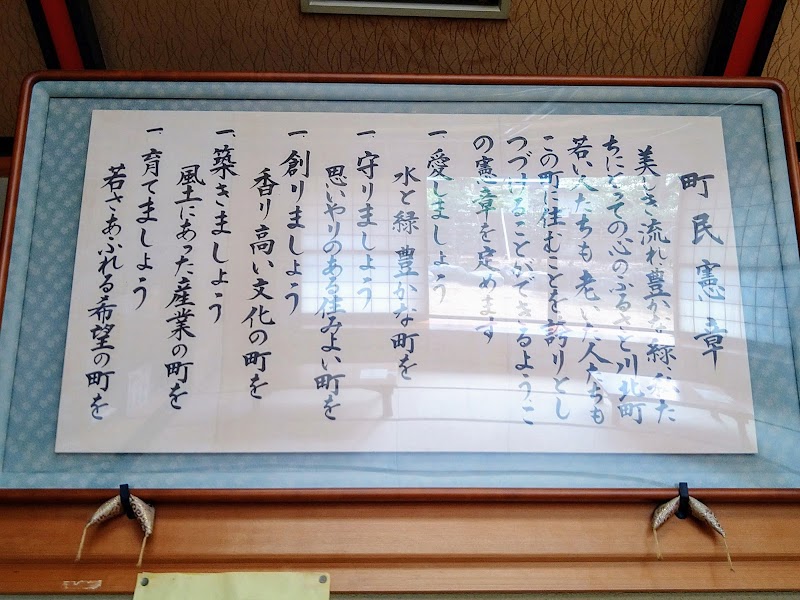 町民憲章
美しき流れ豊かな緑、わた
ちにとその心のふるさと川北町
若い人たちも老いた人たちも
この町に住むことを誇りとし
つづけることができるようこ
の憲章を定めます
一、愛しましょう
水と緑豊かな町を
一、守りましょう
思いやりのある住みよい町を
一、創りましょう
香り高い文化の町を
一、築きましょう
風土にあった産業の町を
一、育てましょう
若さあふれる希望の町を